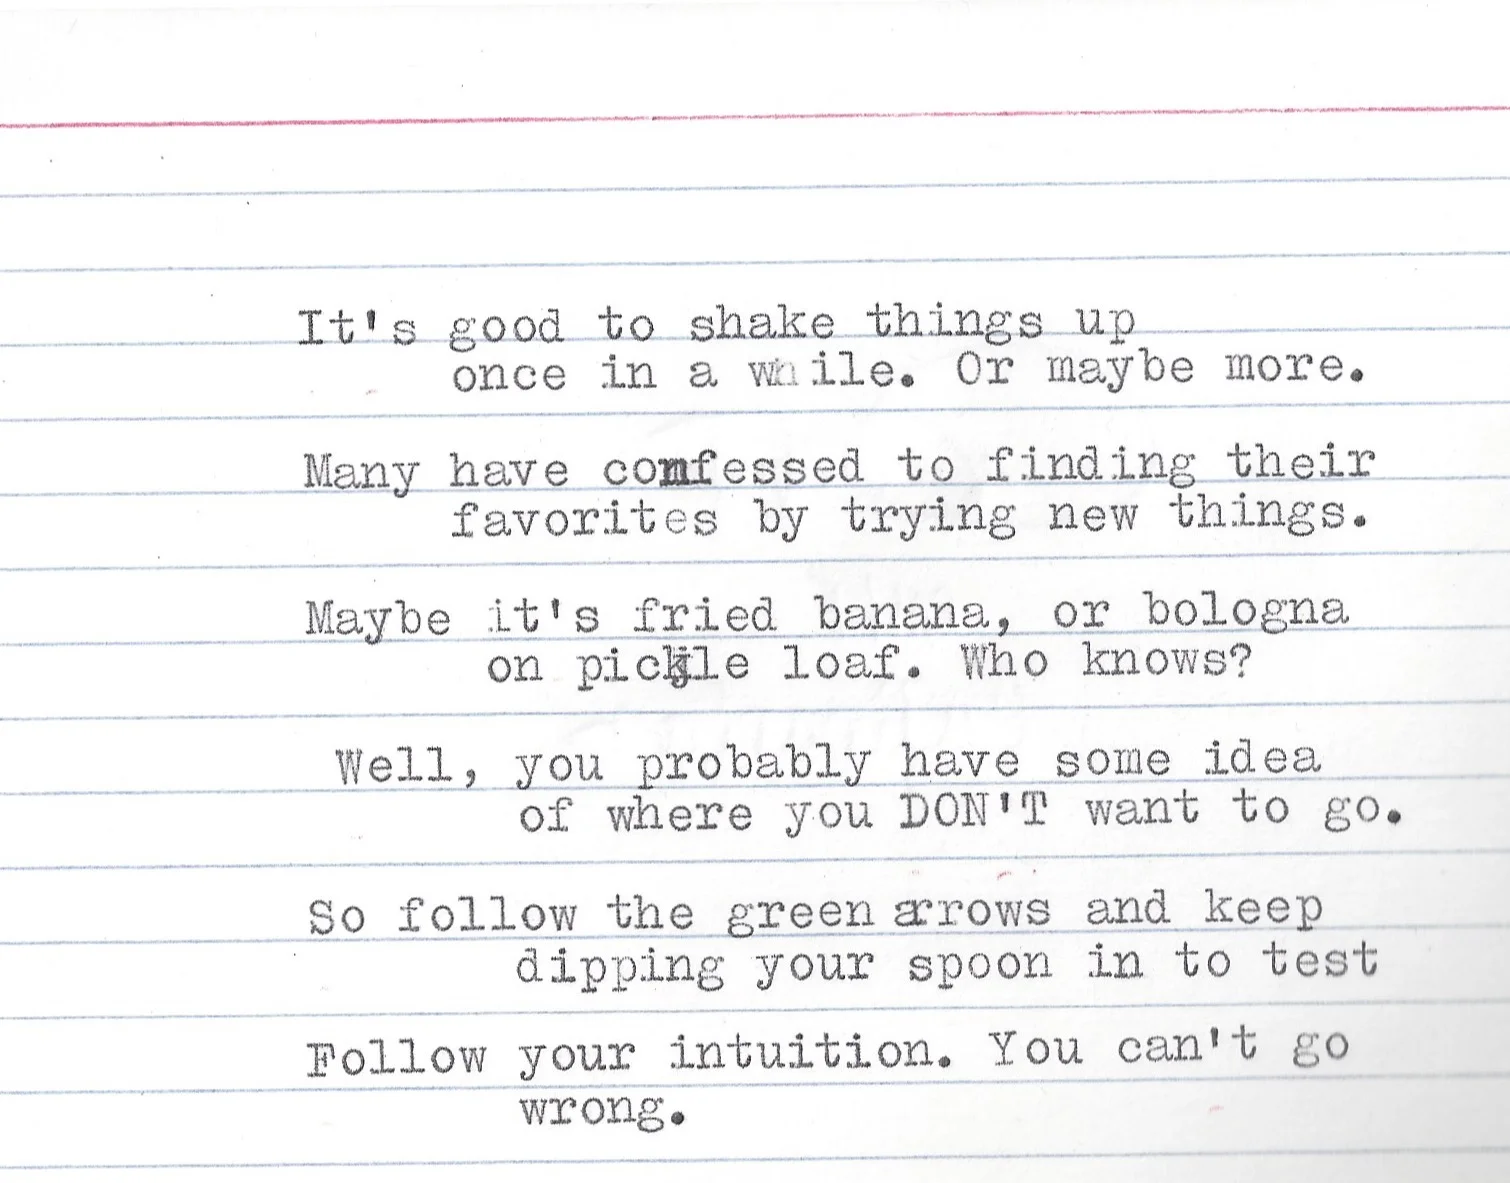 It's good to shake things up
once in a while. Or maybe more.
Many have confessed to finding their
favorites by trying new things.
Maybe it's fried banana, or bologna
on pickle loaf. Who knows?
Well, you probably have some idea
of where you DON'T want to go.
So follow the green arrows and keep
dipping your spoon in to test
Follow your intuition. You can't go
wrong.